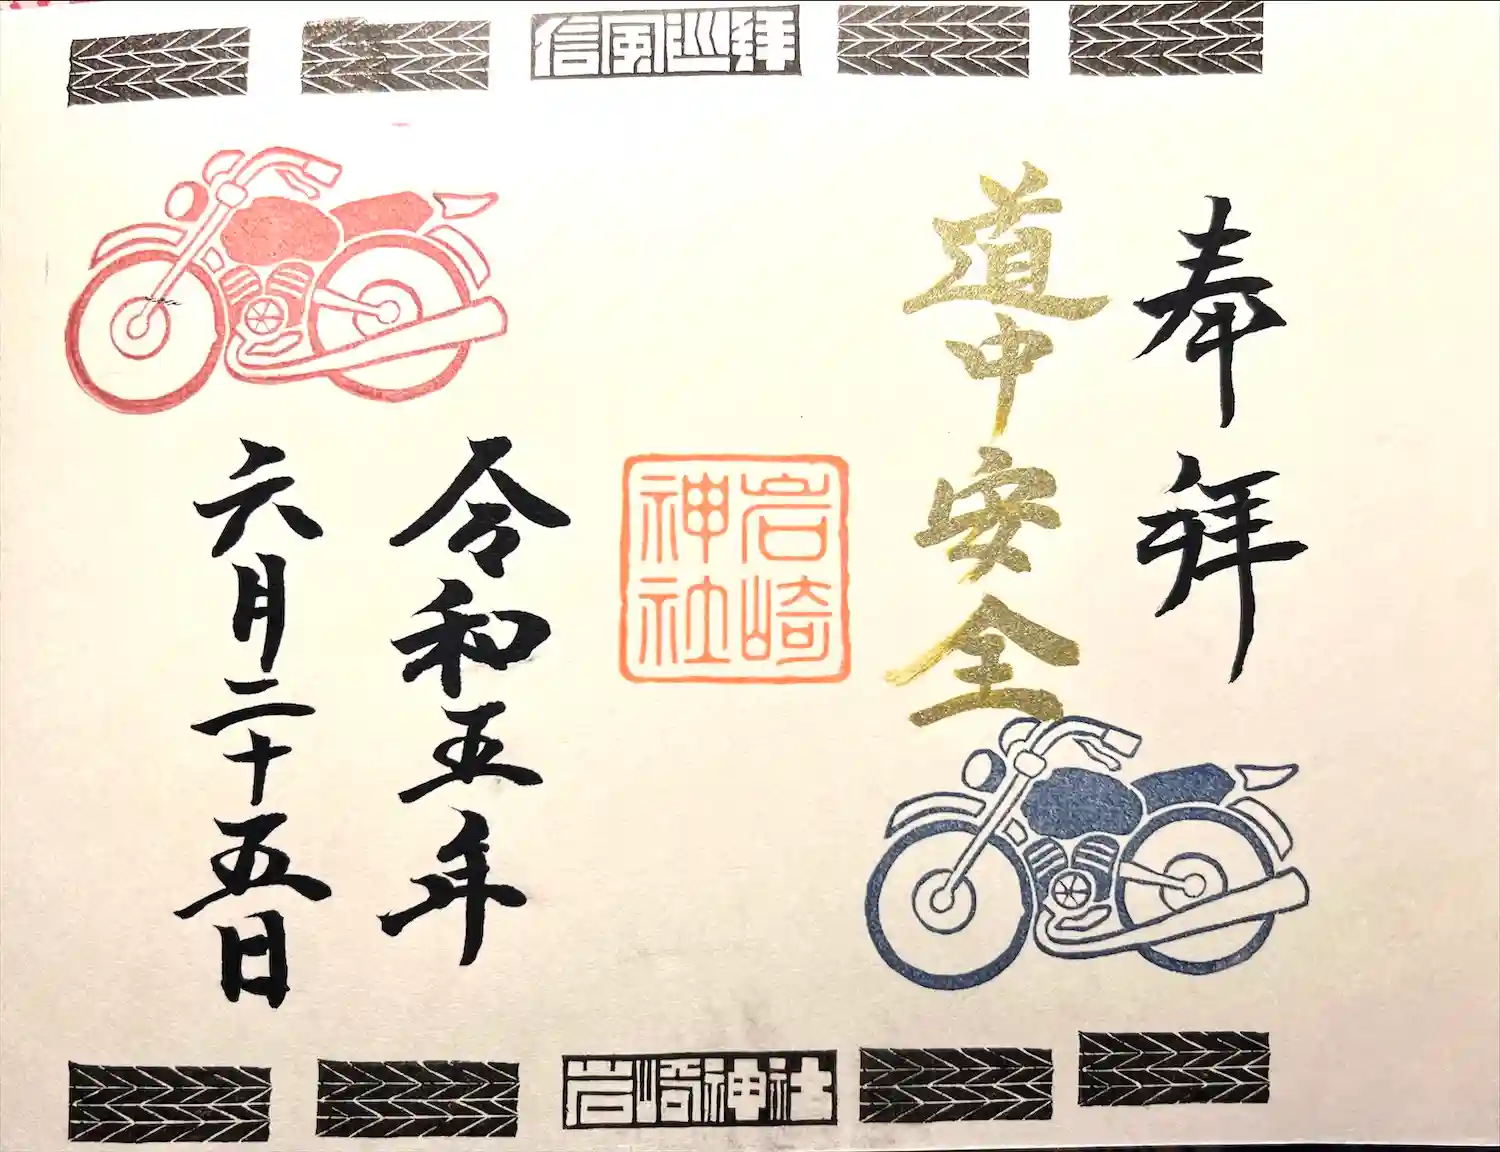 信風巡拝
奉拝
道中安全
岩崎
神社
令和五年
六月二十五日
岩崎神社